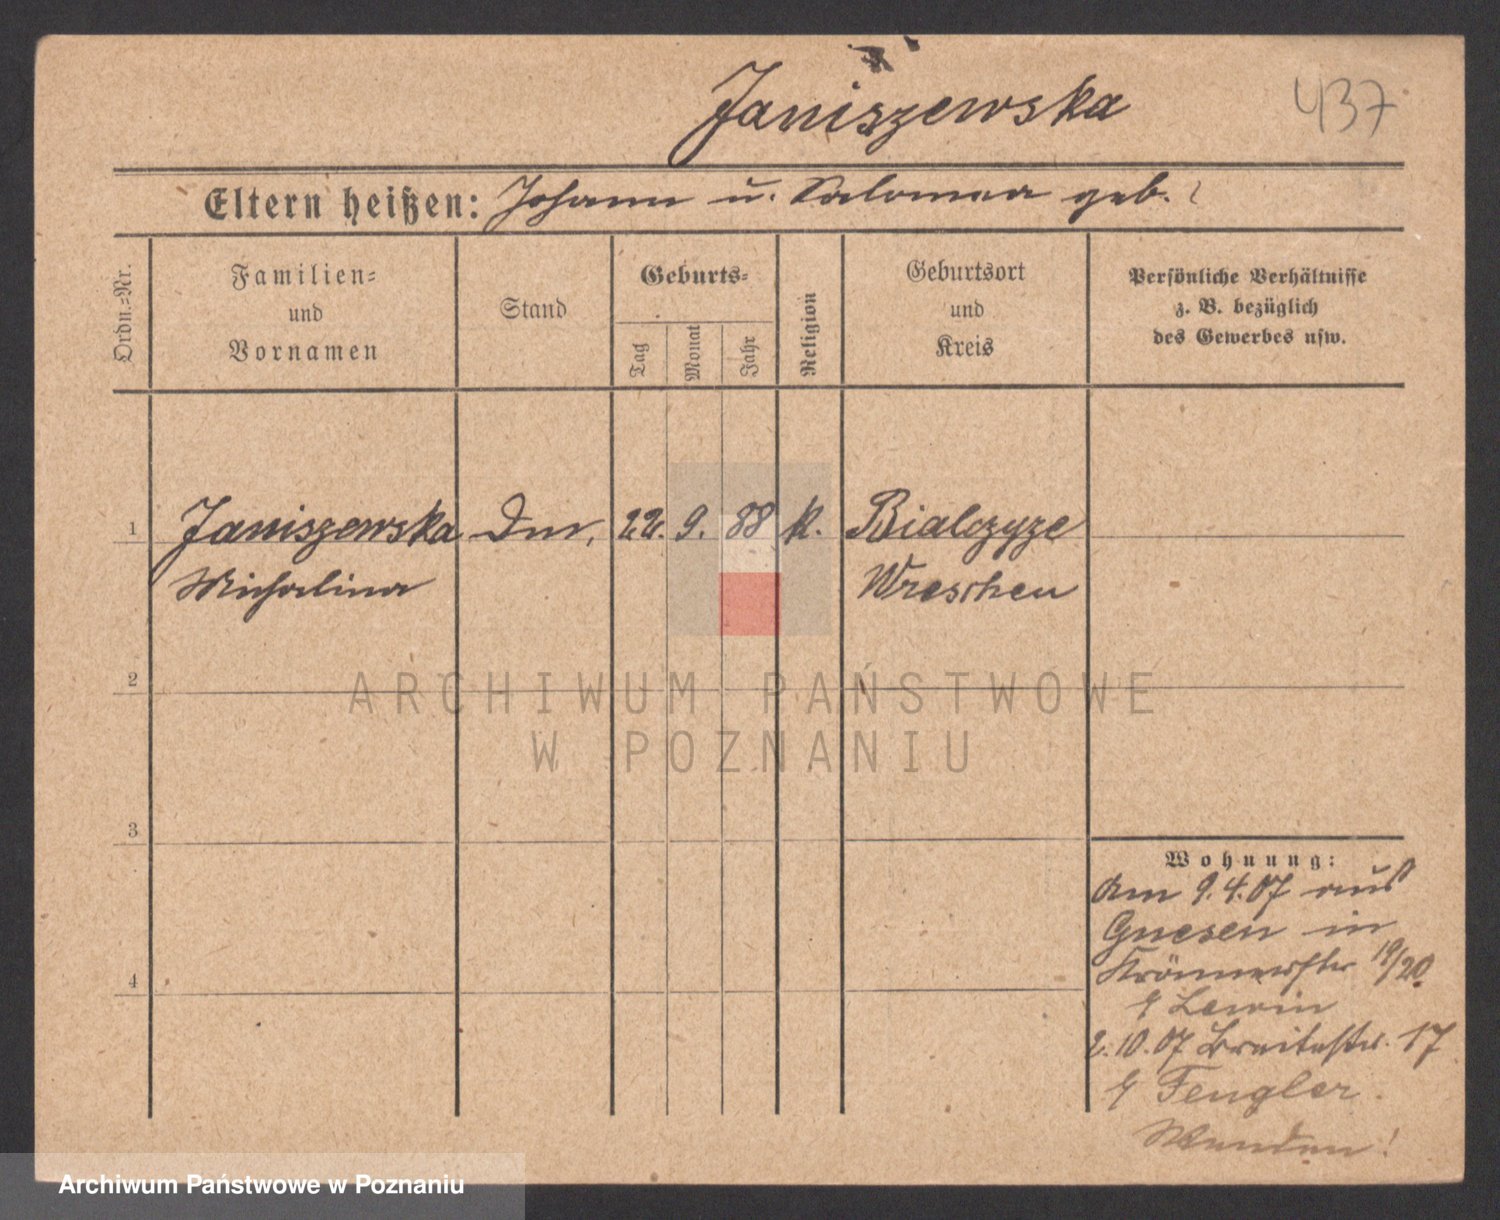 Janiszewska
437
Eltern heißen: Johann u. Salomea geb. ?
Ordn.-Nr.
Familien-
und
Vornamen
Stand
Geburts-
Tag
Monat
Jahr
Religion
Geburtsort
und
Kreis
Persönliche Verhältnisse
z. B. bezüglich
des Gewerbes usw.
1
Janiszewska
Michalina
22. 9. 88 k.
Bialczyze
Wreschen
2
ARCHIWUM PAŃSTWOWE
W POZNANIU
3
4
Wohnung:
Am 9.4.07 aus
Gnesen in
19/20
Lewin
2.10.07 Breitestr. 17
Fengler.
Wenden!
Archiwum Państwowe w Poznaniu